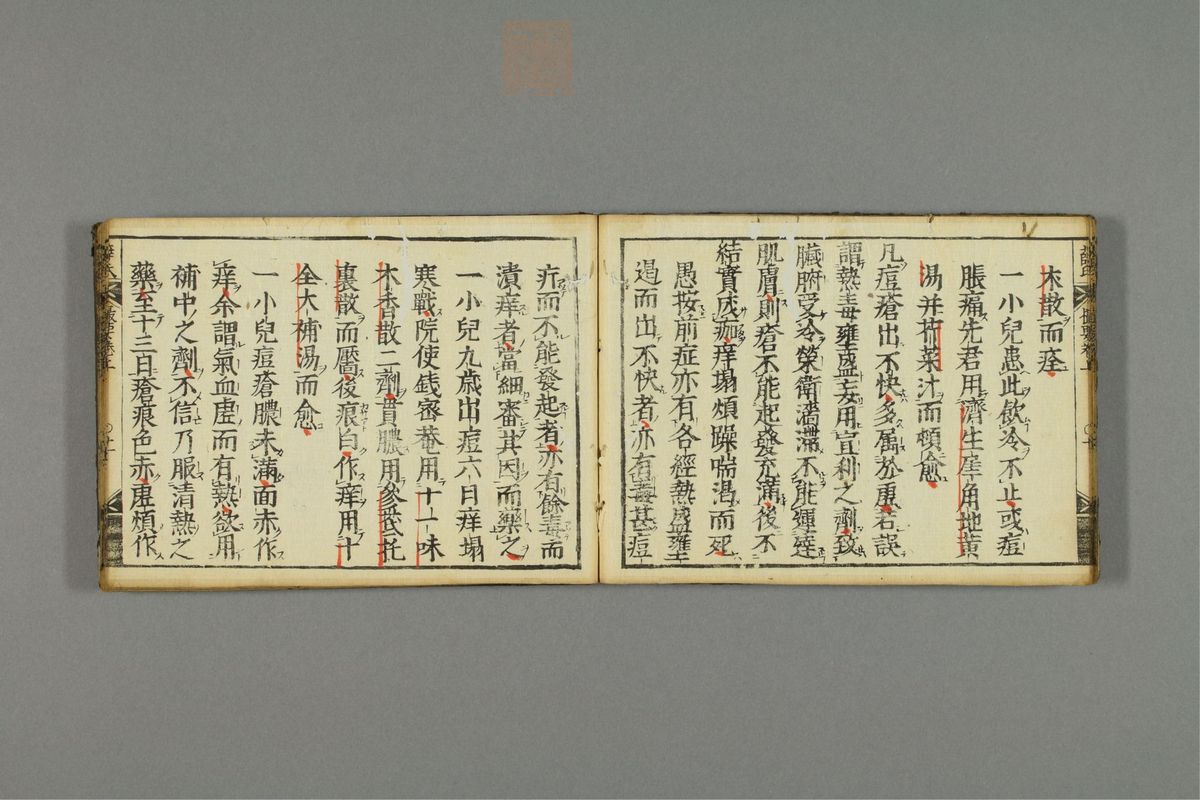 木散而痊
一小兒患此飲冷不止或痘
脹痛先君用濟生犀角地黄
湯并芹菜汁而頓愈
凡痘瘡出不快多属於虚若誤
謂熱毒壅盛妄用宣利之劑致
臟腑受冷榮衛澁滞不能運達
肌膚則瘡不能起發充滿後不
結實成痂痒塌煩躁喘渇而死
愚按前症亦有各經熱盛壅
遏而出不快者亦有毒甚痘
疔而不能發起者亦有餘毒而
潰痒者當細審其因而藥之
一小兒九歳出痘六日痒塌
寒戰院使銭密菴用十一味
木香散二劑貫膿用參芪托
裏散而靨後痕白作痒用十
全大補湯而愈
一小兒痘瘡膿未滿面赤作
痒余謂氣血虚而有熱欲用
補中之劑不信乃服清熱之
藥至十三日瘡痕色赤虚煩作